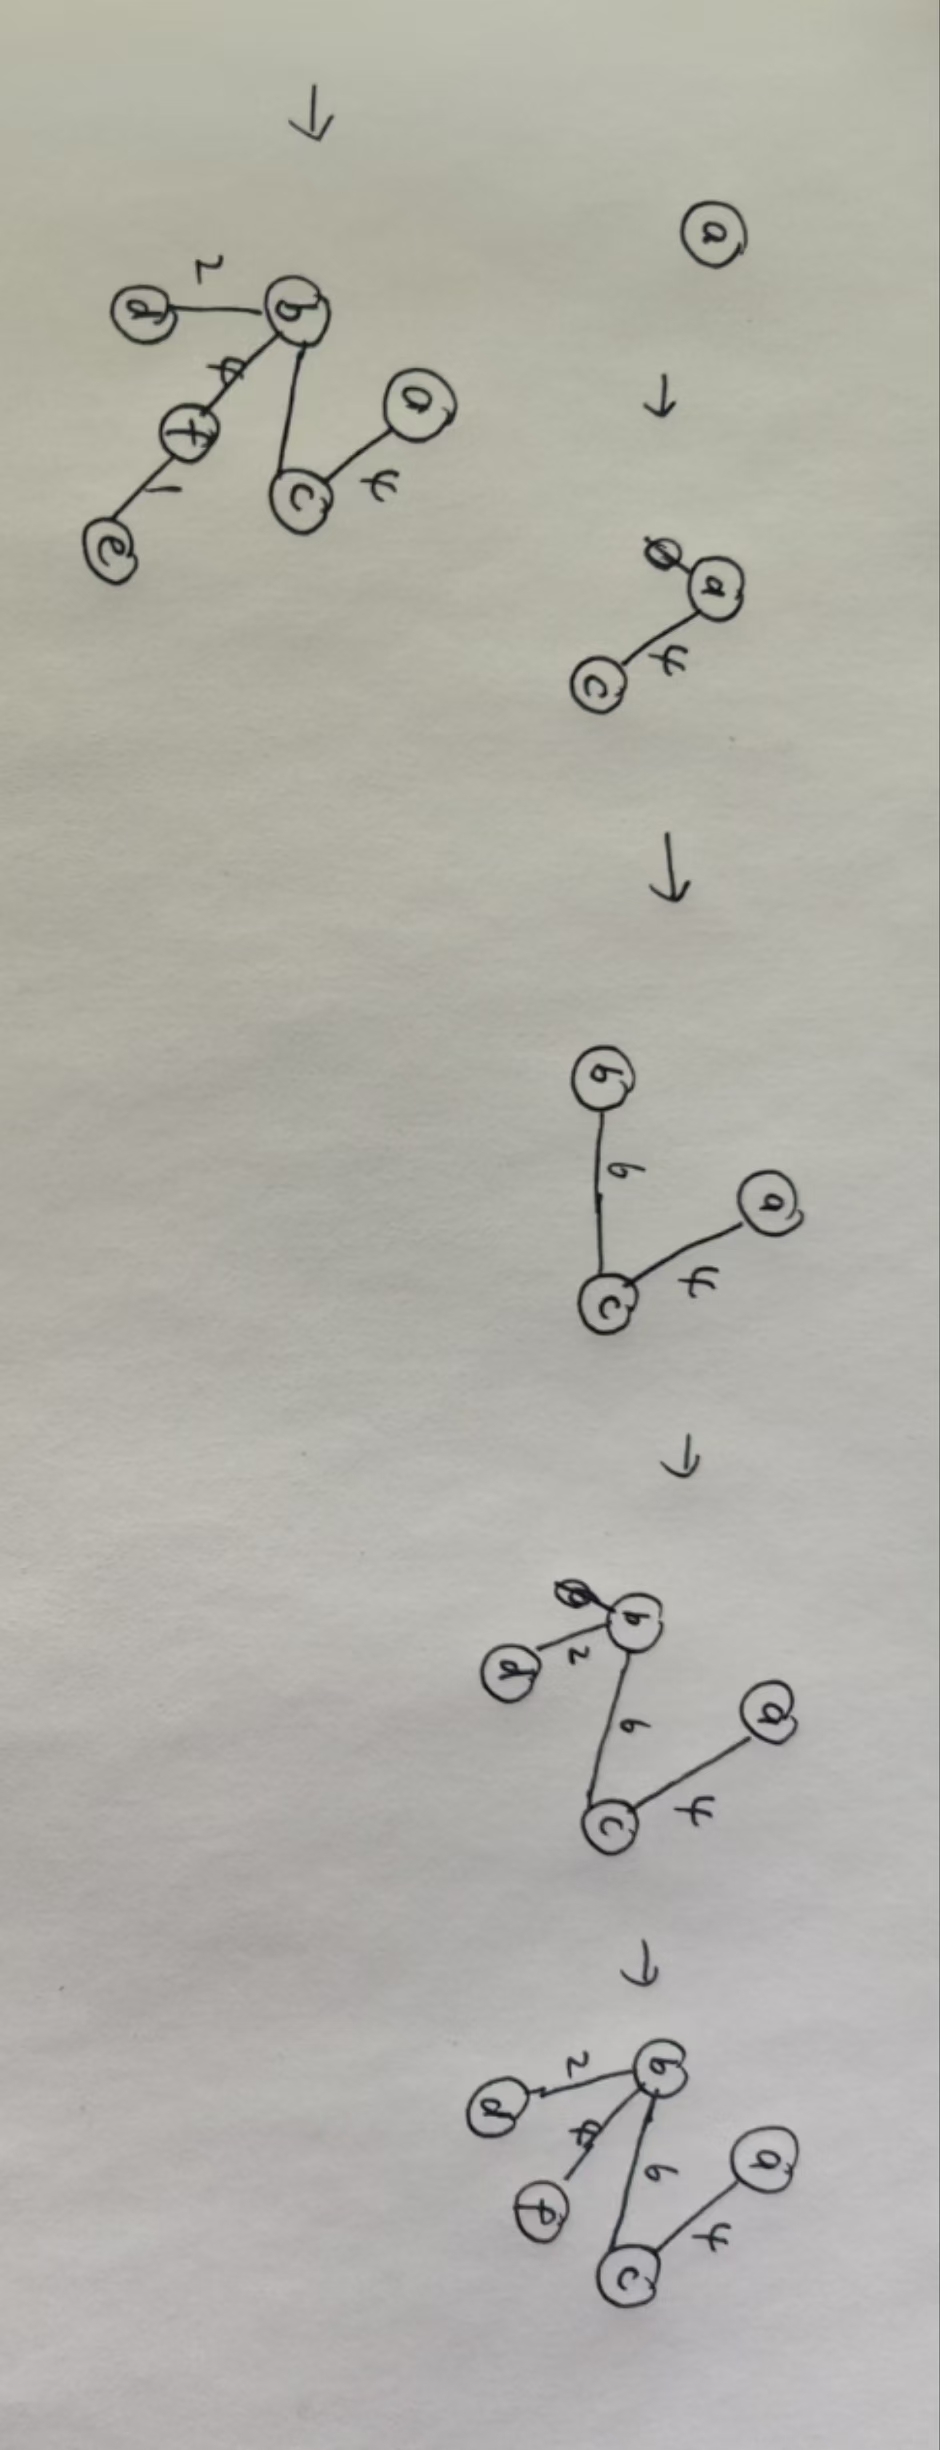 a → a 4 c → a 4 b 6 c → a 4 b 6 c 2 d → a 4 b 6 c 2 4 f d
→ a 4 b c 2 4 f 1 d e